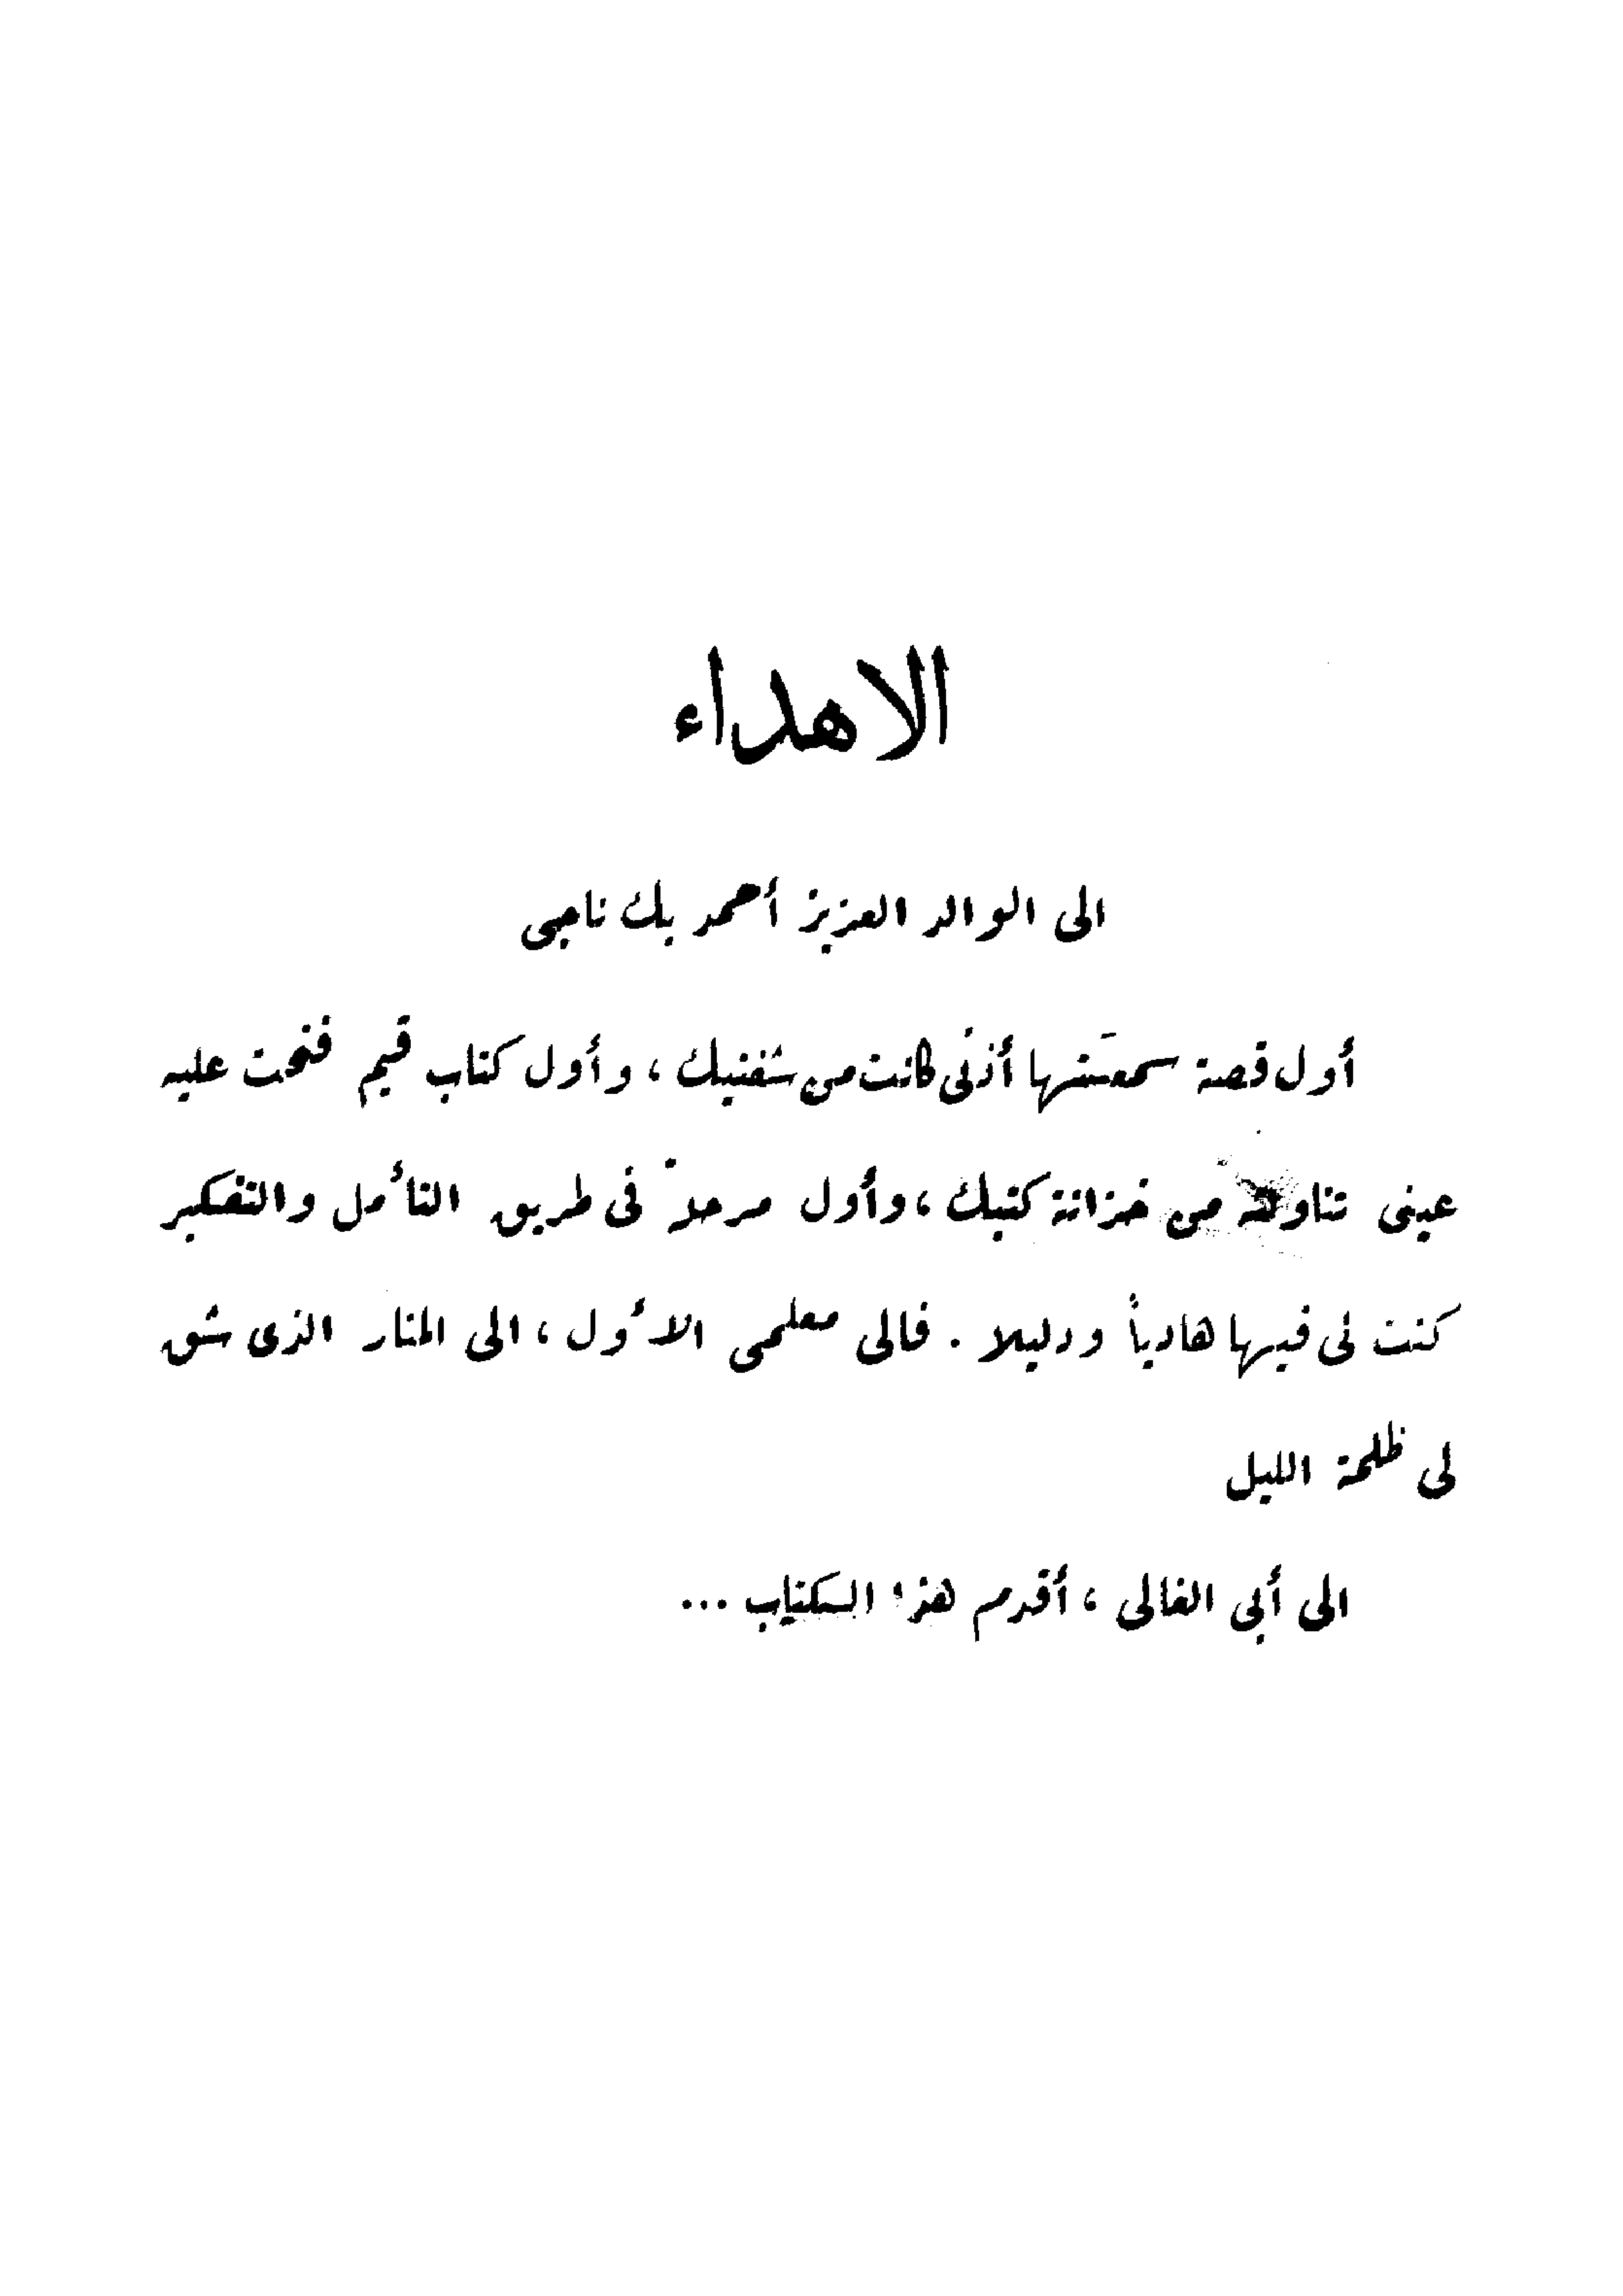 الاهداء
الى الوالد العزيز أحمد بك ناجى
أول قصة سمعتها أذنى كانت من شفتيك ، وأول كتاب قيم فتحت عليه
عينى من خزانة كتبك ، وأول مرحلة فى طريق التأمل والتفكير
كنت لى فيها هادياً ودليلا . فالى معلمى الأول ، الى المنار الذى شق
لى ظلمة الليل
الى أبى الغالى ، أقدم هذا الكتاب ...